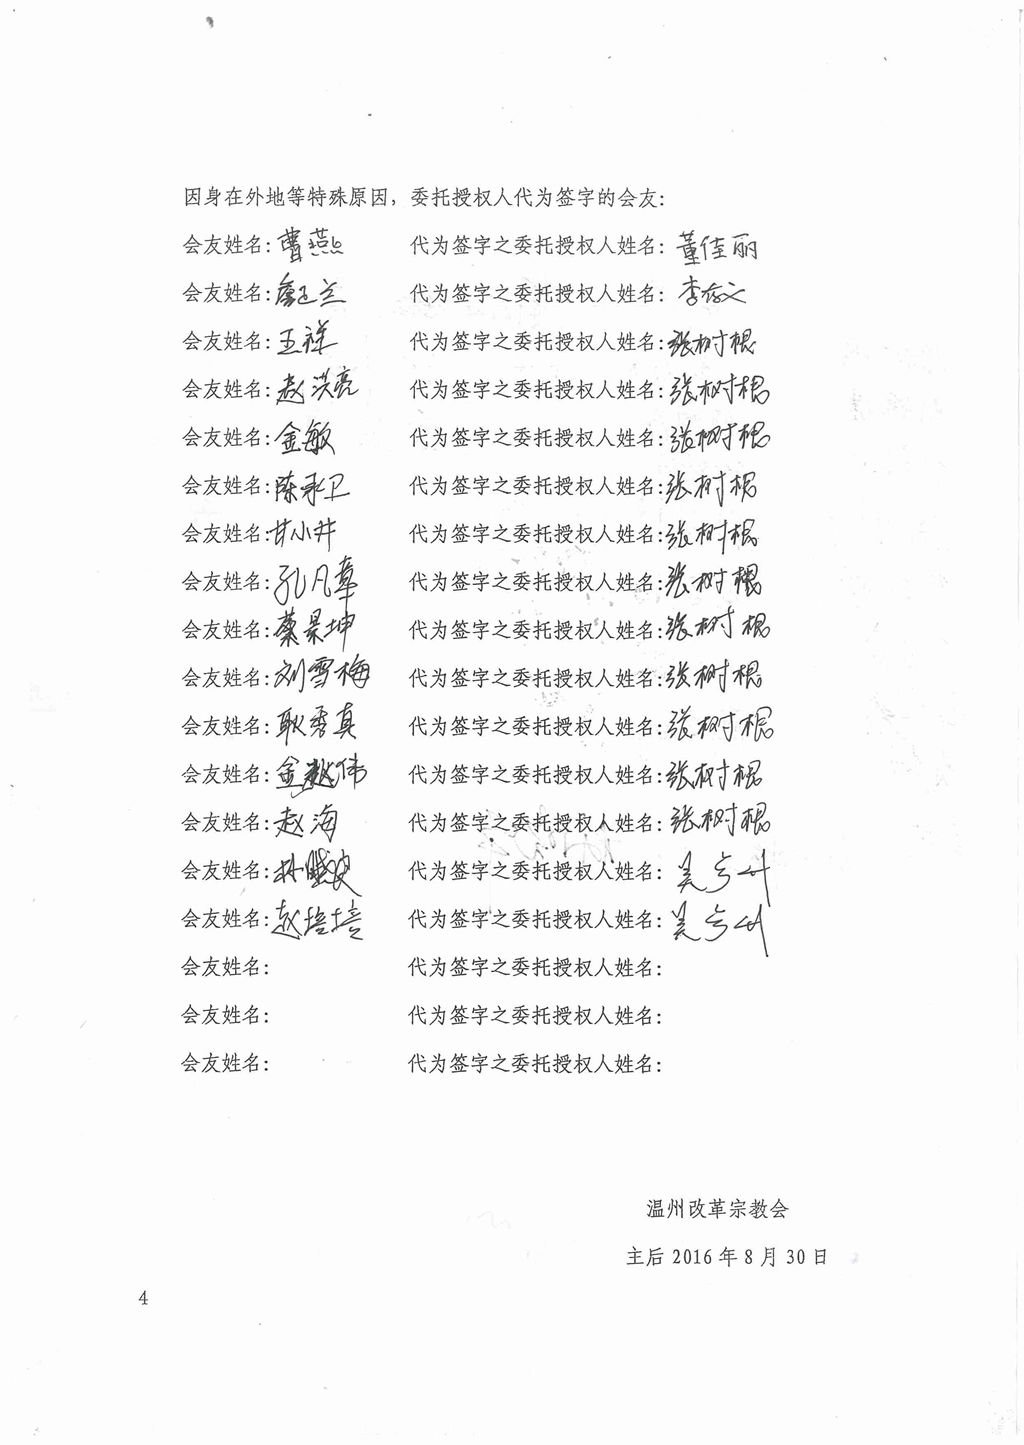 因身在外地等特殊原因，委托授权人代为签字的会友：
会友姓名：曹燕 代为签字之委托授权人姓名：董佳丽
会友姓名：兰 代为签字之委托授权人姓名：李存义
会友姓名：王祥 代为签字之委托授权人姓名：张树根
会友姓名：赵洪亮 代为签字之委托授权人姓名：张树根
会友姓名：金敏 代为签字之委托授权人姓名：张树根
会友姓名：陈承卫 代为签字之委托授权人姓名：张树根
会友姓名：甘小井 代为签字之委托授权人姓名：张树根
会友姓名：孔凡章 代为签字之委托授权人姓名：张树根
会友姓名：蔡景坤 代为签字之委托授权人姓名：张树根
会友姓名：刘雪梅 代为签字之委托授权人姓名：张树根
会友姓名：耿秀真 代为签字之委托授权人姓名：张树根
会友姓名：金越伟 代为签字之委托授权人姓名：张树根
会友姓名：赵海 代为签字之委托授权人姓名：张树根
会友姓名： 代为签字之委托授权人姓名：吴
会友姓名：赵培培 代为签字之委托授权人姓名：吴
会友姓名： 代为签字之委托授权人姓名：
会友姓名： 代为签字之委托授权人姓名：
会友姓名： 代为签字之委托授权人姓名：
温州改革宗教会
主后 2016 年 8 月 30 日
4